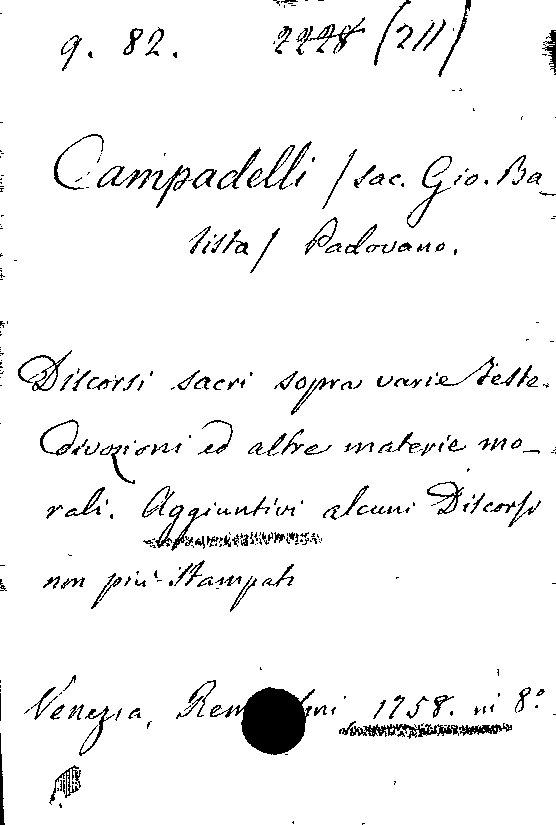 9. 82. 2228 (211)
Campadelli / sac. Gio. Ba_
tista / Padovano.
Discorsi sacri sopra varie Feste
divozioni ed altre materie mo_
rali. Aggiuntivi alcuni Discorsi
non più Stampati
Venezia, 1758. in 8.º